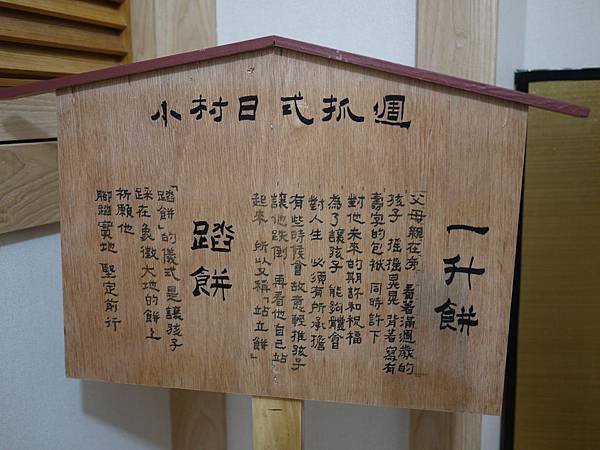 小村日式抓週
一升餅
「父母親在旁 看著滿週歲的
孩子 搖搖晃晃 背著寫有
壽字的包袱 同時許下
對他未來的期許和祝福
為了讓孩子 能夠體會
對人生 必須有所承擔
有些時候會故意輕推孩子
讓他跌倒 再看他自己站
起來 所以又稱「站立餅」
踏餅
「踏餅」的儀式 是讓孩子
踩在象徵大地的餅上
祈願他
腳踏實地 堅定前行